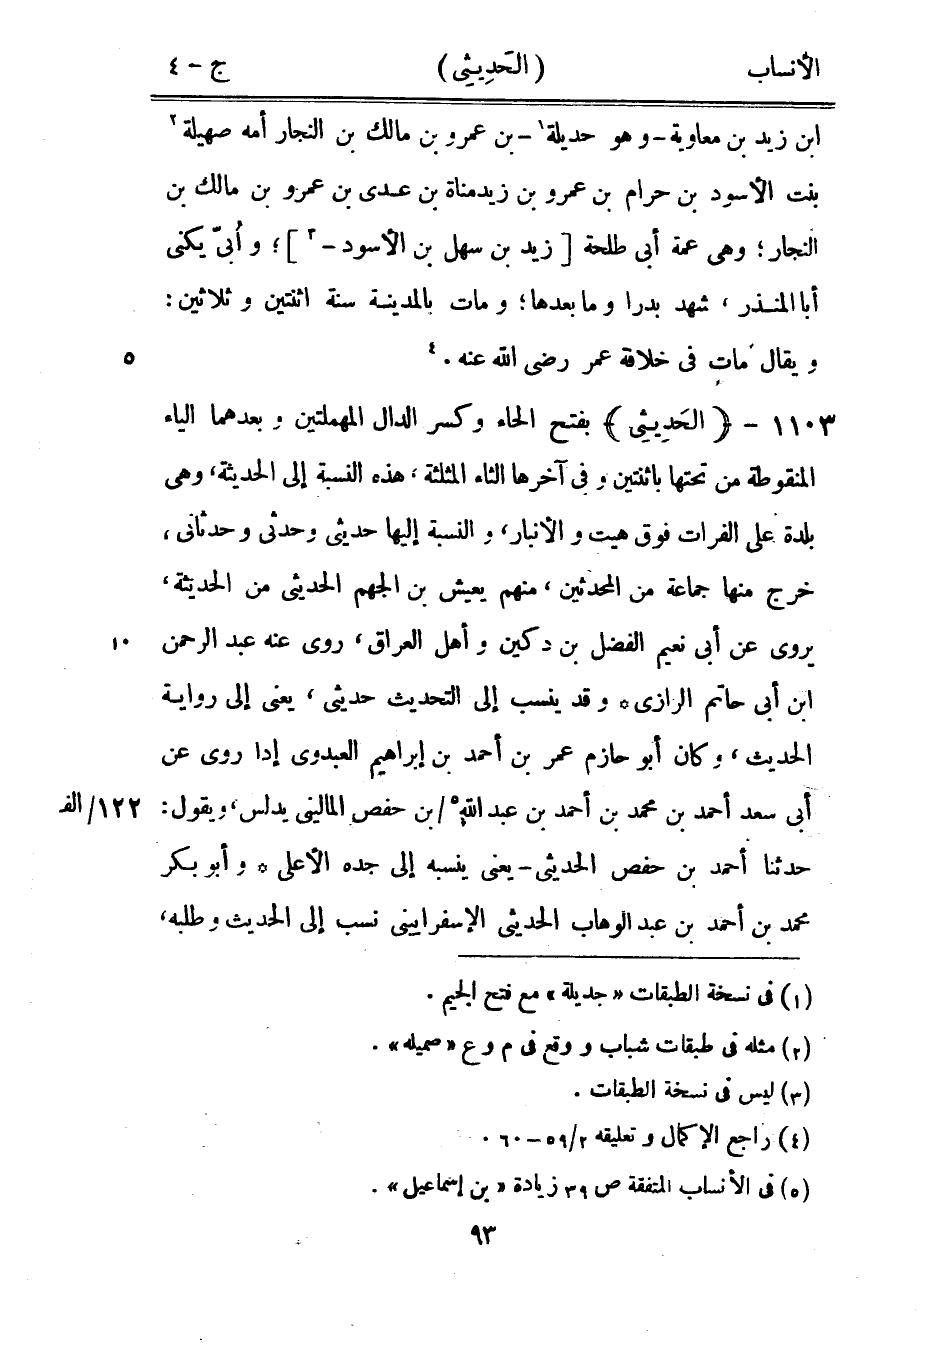 الأنساب (الحَدِيثى) ج - ٤
ابن زيد بن معاوية - و هو حديلة١ - بن عمرو بن مالك بن النجار أمه صهيلة٢
بنت الأسود بن حرام بن عمرو بن زيدمناة بن عدى بن عمرو بن مالك بن
النجار؛ وهى عمة أبى طلحة [ زيد بن سهل بن الأسود - ٣ ]؛ و أُبىّ يكنى
أبا المنذر ، شهد بدرا و ما بعدها؛ و مات بالمدينة سنة اثنتين و ثلاثين:
و يقال مات فى خلافة عمر رضى الله عنه ٠٤ ٥
١١٠٣ - ﴿ الحَدِيثى ﴾ بفتح الحاء وكسر الدال المهملتين و بعدهما الياء
المنقوطة من تحتها باثنتين و فى آخرها الثاء المثلثة ، هذه النسبة إلى الحديثة، وهى
بلدة على الفرات فوق هيت و الأنبار، و النسبة إليها حديثى وحدثى و حدثانى ،
خرج منها جماعة من المحدثين ، منهم يعيش بن الجهم الحديثى من الحديثة،
يروى عن أبى نعيم الفضل بن دكين و أهل العراق، روى عنه عبد الرحمن ١٠
ابن أبى حاتم الرازى * و قد ينسب إلى التحديث حديثى ، يعنى إلى رواية
الحديث ، وكان أبو حازم عمر بن أحمد بن إبراهيم العبدوى إدا روى عن
أبى سعد أحمد بن محمد بن أحمد بن عبد الله٥ / بن حفص المالينى يدلس، ويقول: ١٢٢/الف
حدثنا أحمد بن حفص الحديثى - يعنى ينسبه إلى جده الأعلى * و أبو بكر
محمد بن أحمد بن عبد الوهاب الحديثى الإسفراينى نسب إلى الحديث و طلبه،
(١) فى نسخة الطبقات « جديلة » مع فتح الجيم .
(٢) مثله فى طبقات شباب و وقع فى م و ع « صميله » .
(٣) ليس فى نسخة الطبقات .
(٤) راجع الإكمال و تعليقه ٢/ ٥٩ - ٦٠ .
(٥) فى الأنساب المتفقة ص ٣٩ زيادة « بن إسماعيل » .
٩٣